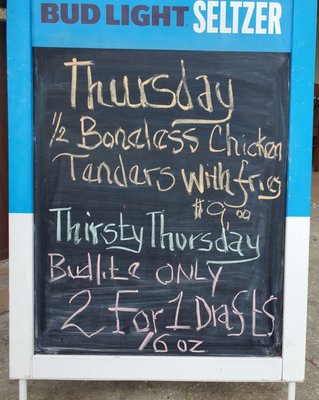 BUD LIGHT SELTZER
Thursday
1/2 Boneless Chicken
Tenders with fries
$9.00
Thirsty Thursday
Budlite ONLY
2 For 1 Drafts
16 oz